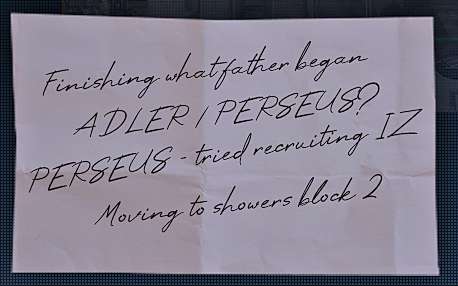 Finishing what father began
ADLER / PERSEUS?
PERSEUS - tried recruiting IZ
Moving to showers block 2